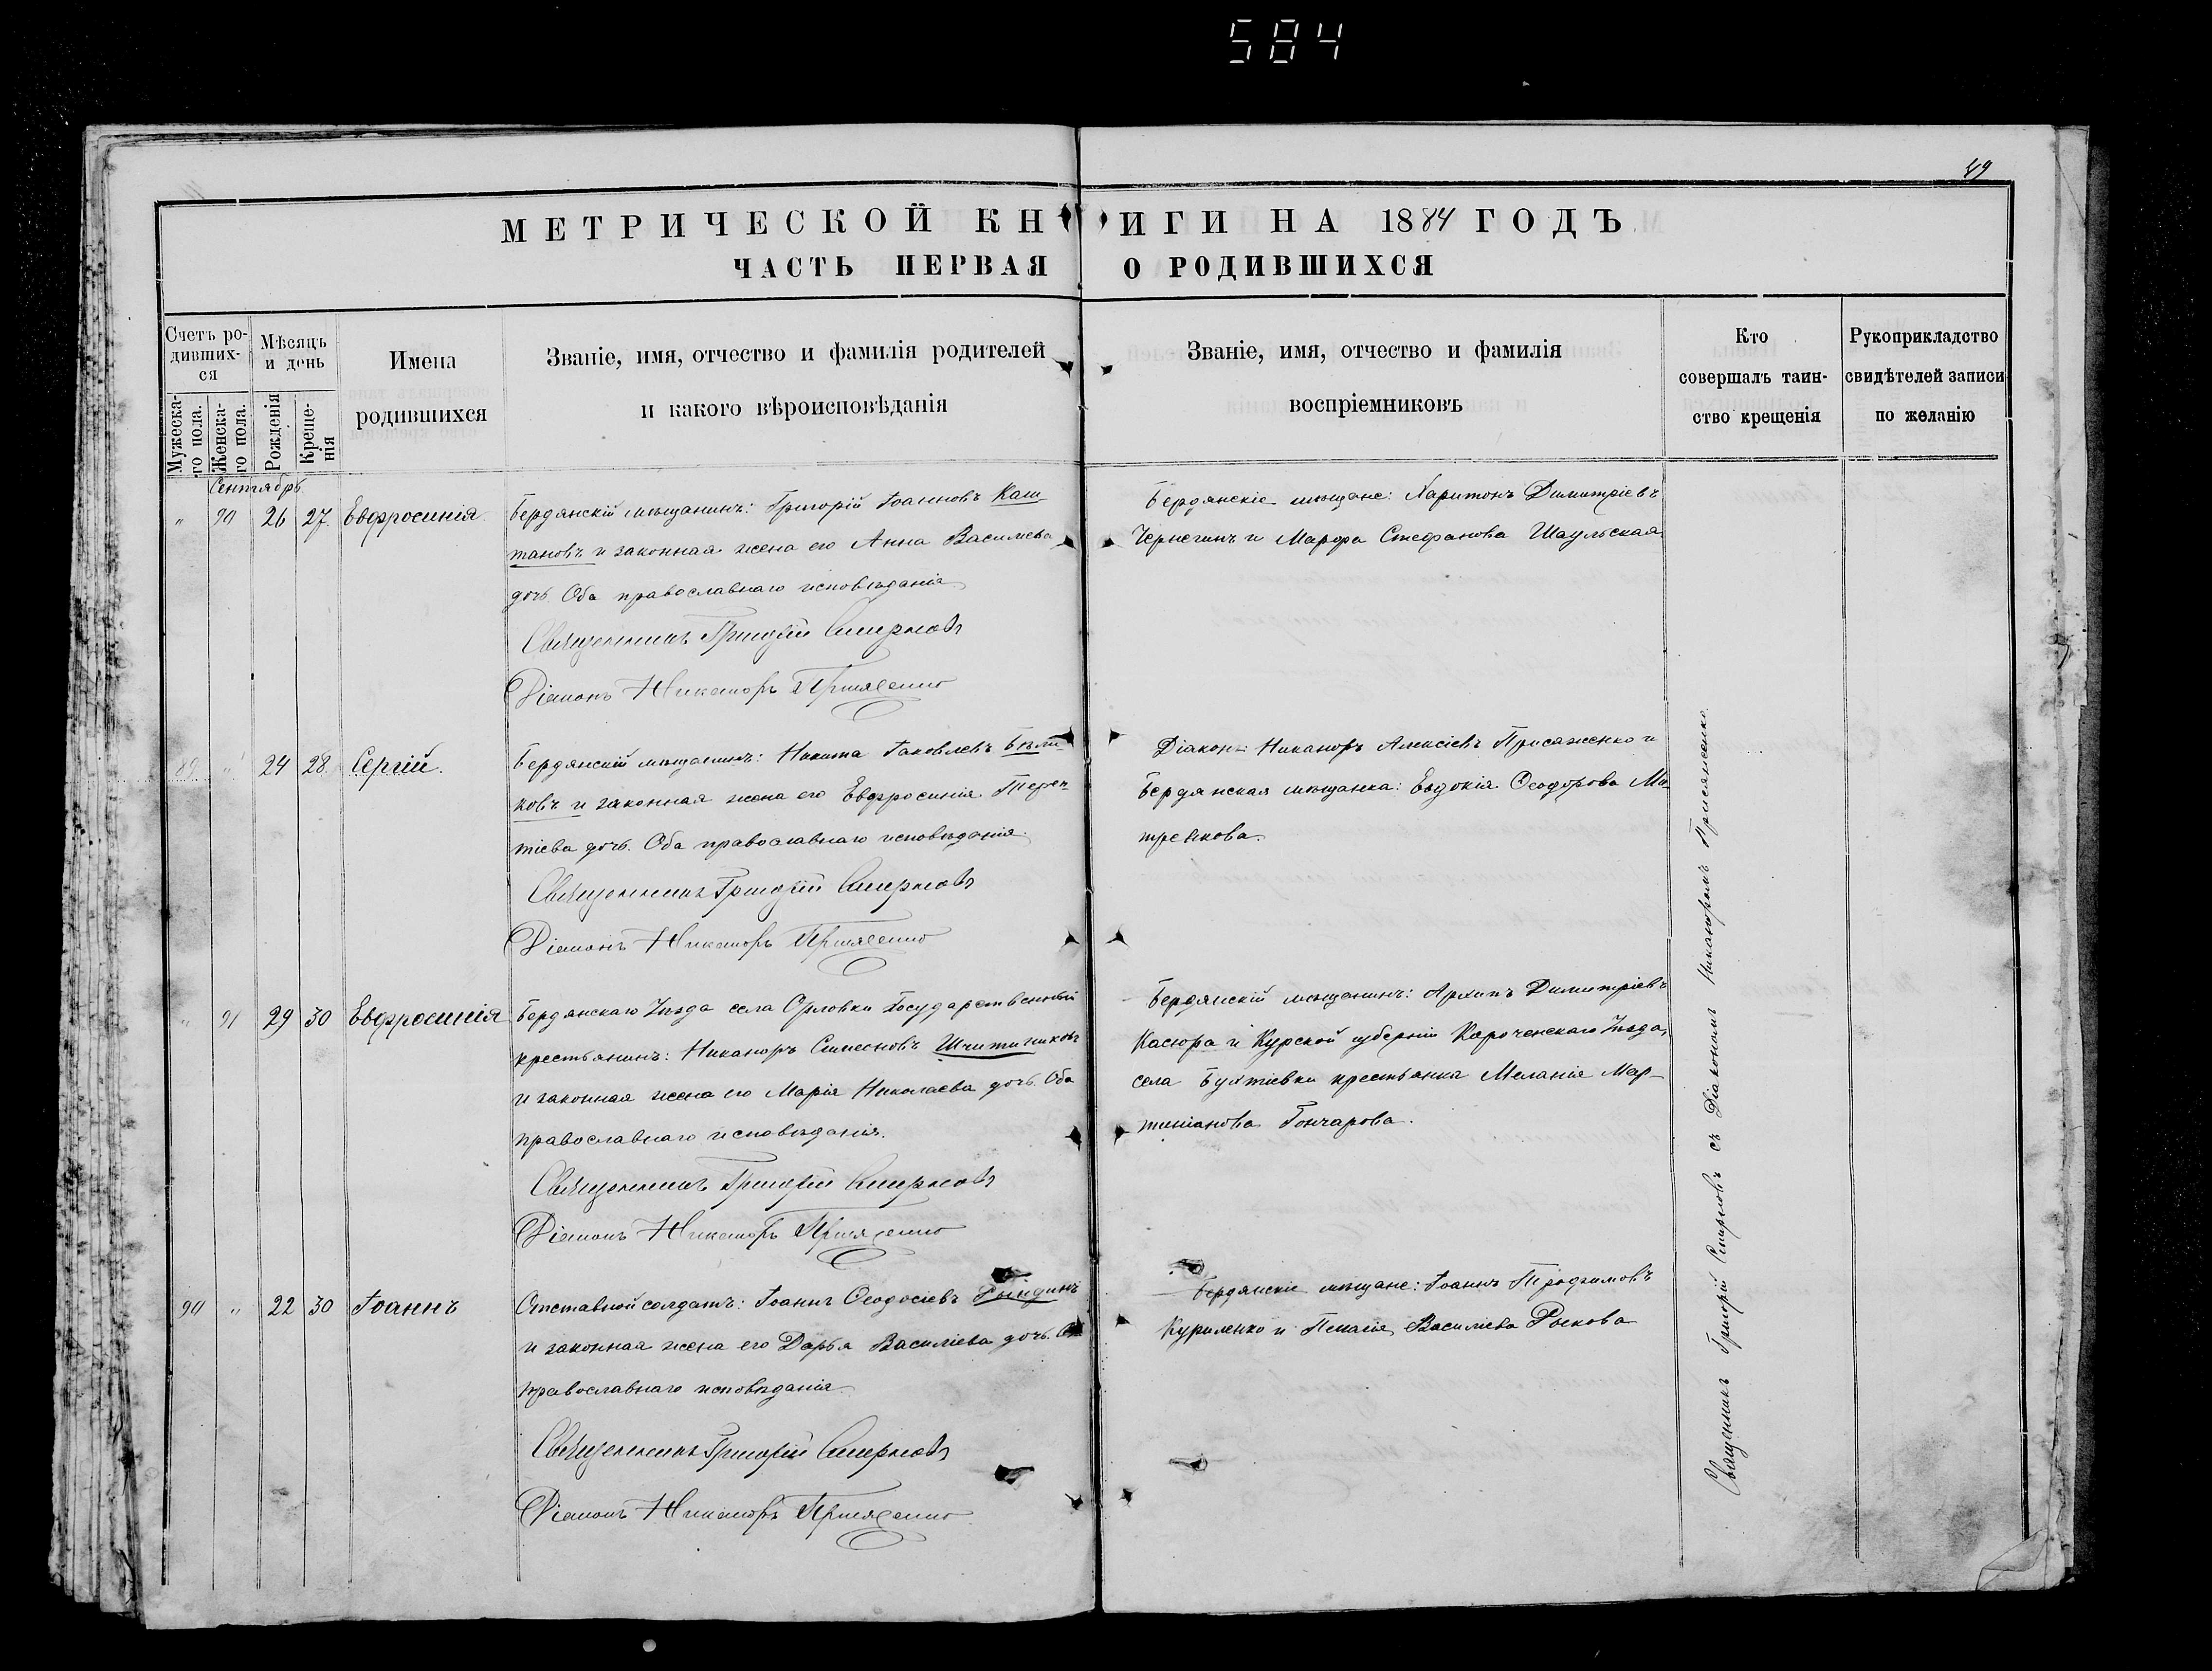 584
49
МЕТРИЧЕСКОЙ КНИГИ НА 1884 ГОДЪ
ЧАСТЬ ПЕРВАЯ О РОДИВШИХСЯ
Счетъ ро-
дивших-
ся
Мужеска-
го пола.
Женска-
го пола.
Мѣсяцъ
и день
Рожденія
Креще-
нія
Имена
родившихся
Званіе, имя, отчество и фамилія родителей
и какого вѣроисповѣданія
Званіе, имя, отчество и фамилія
воспріемниковъ
Кто
совершалъ таин-
ство крещенія
Рукоприкладство
свидѣтелей записи
по желанію
Сентябрь
" 90 26 27 Евфросинія
Бердянскій мѣщанинъ: Григорій Іоанновъ Каш
тановъ и законная жена его Анна Василіева
дочь. Оба православнаго исповѣданія
Священникъ Григорій Смирновъ
Діаконъ Никаноръ Присяженко
Бердянскіе мѣщане: Харитонъ Димитріевъ
и Марфа Стефанова Шаульская
89 " 24 28 Сергій.
Бердянскій мѣщанинъ: Никита Іаковлевъ Бѣли
ковъ и законная жена его Евфросинія Терен
тіева дочь. Оба православнаго исповѣданія.
Священникъ Григорій Смирновъ
Діаконъ Никаноръ Присяженко
Діаконъ Никаноръ Алексіевъ Присяженко и
Бердянская мѣщанка: Евдокія Ѳеодорова Ми-
тренкова.
" 91 29 30 Евфросинія
Бердянскаго Уѣзда села Орловки Государственный
крестьянинъ: Никаноръ Симеоновъ
и законная жена его Марія Николаева дочь. Оба
православнаго исповѣданія.
Священникъ Григорій Смирновъ
Діаконъ Никаноръ Присяженко
Бердянскій мѣщанинъ: Архипъ Димитріевъ
Касюра и Курской губерніи Короченскаго Уѣзда,
села крестьянка Меланія Мар-
тиніанова Гончарова.
90 " 22 30 Іоаннъ
Отставной солдатъ: Іоаннъ Ѳеодосіевъ Рындинъ
и законная жена его Дарья Василіева дочь.
православнаго исповѣданія
Священникъ Григорій Смирновъ
Діаконъ Никаноръ Присяженко
Бердянскіе мѣщане: Іоаннъ Трофимовъ
Куриленко и Пелагія Василіева
Священникъ Григорій Смирновъ съ Діакономъ Никаноромъ Присяженко.